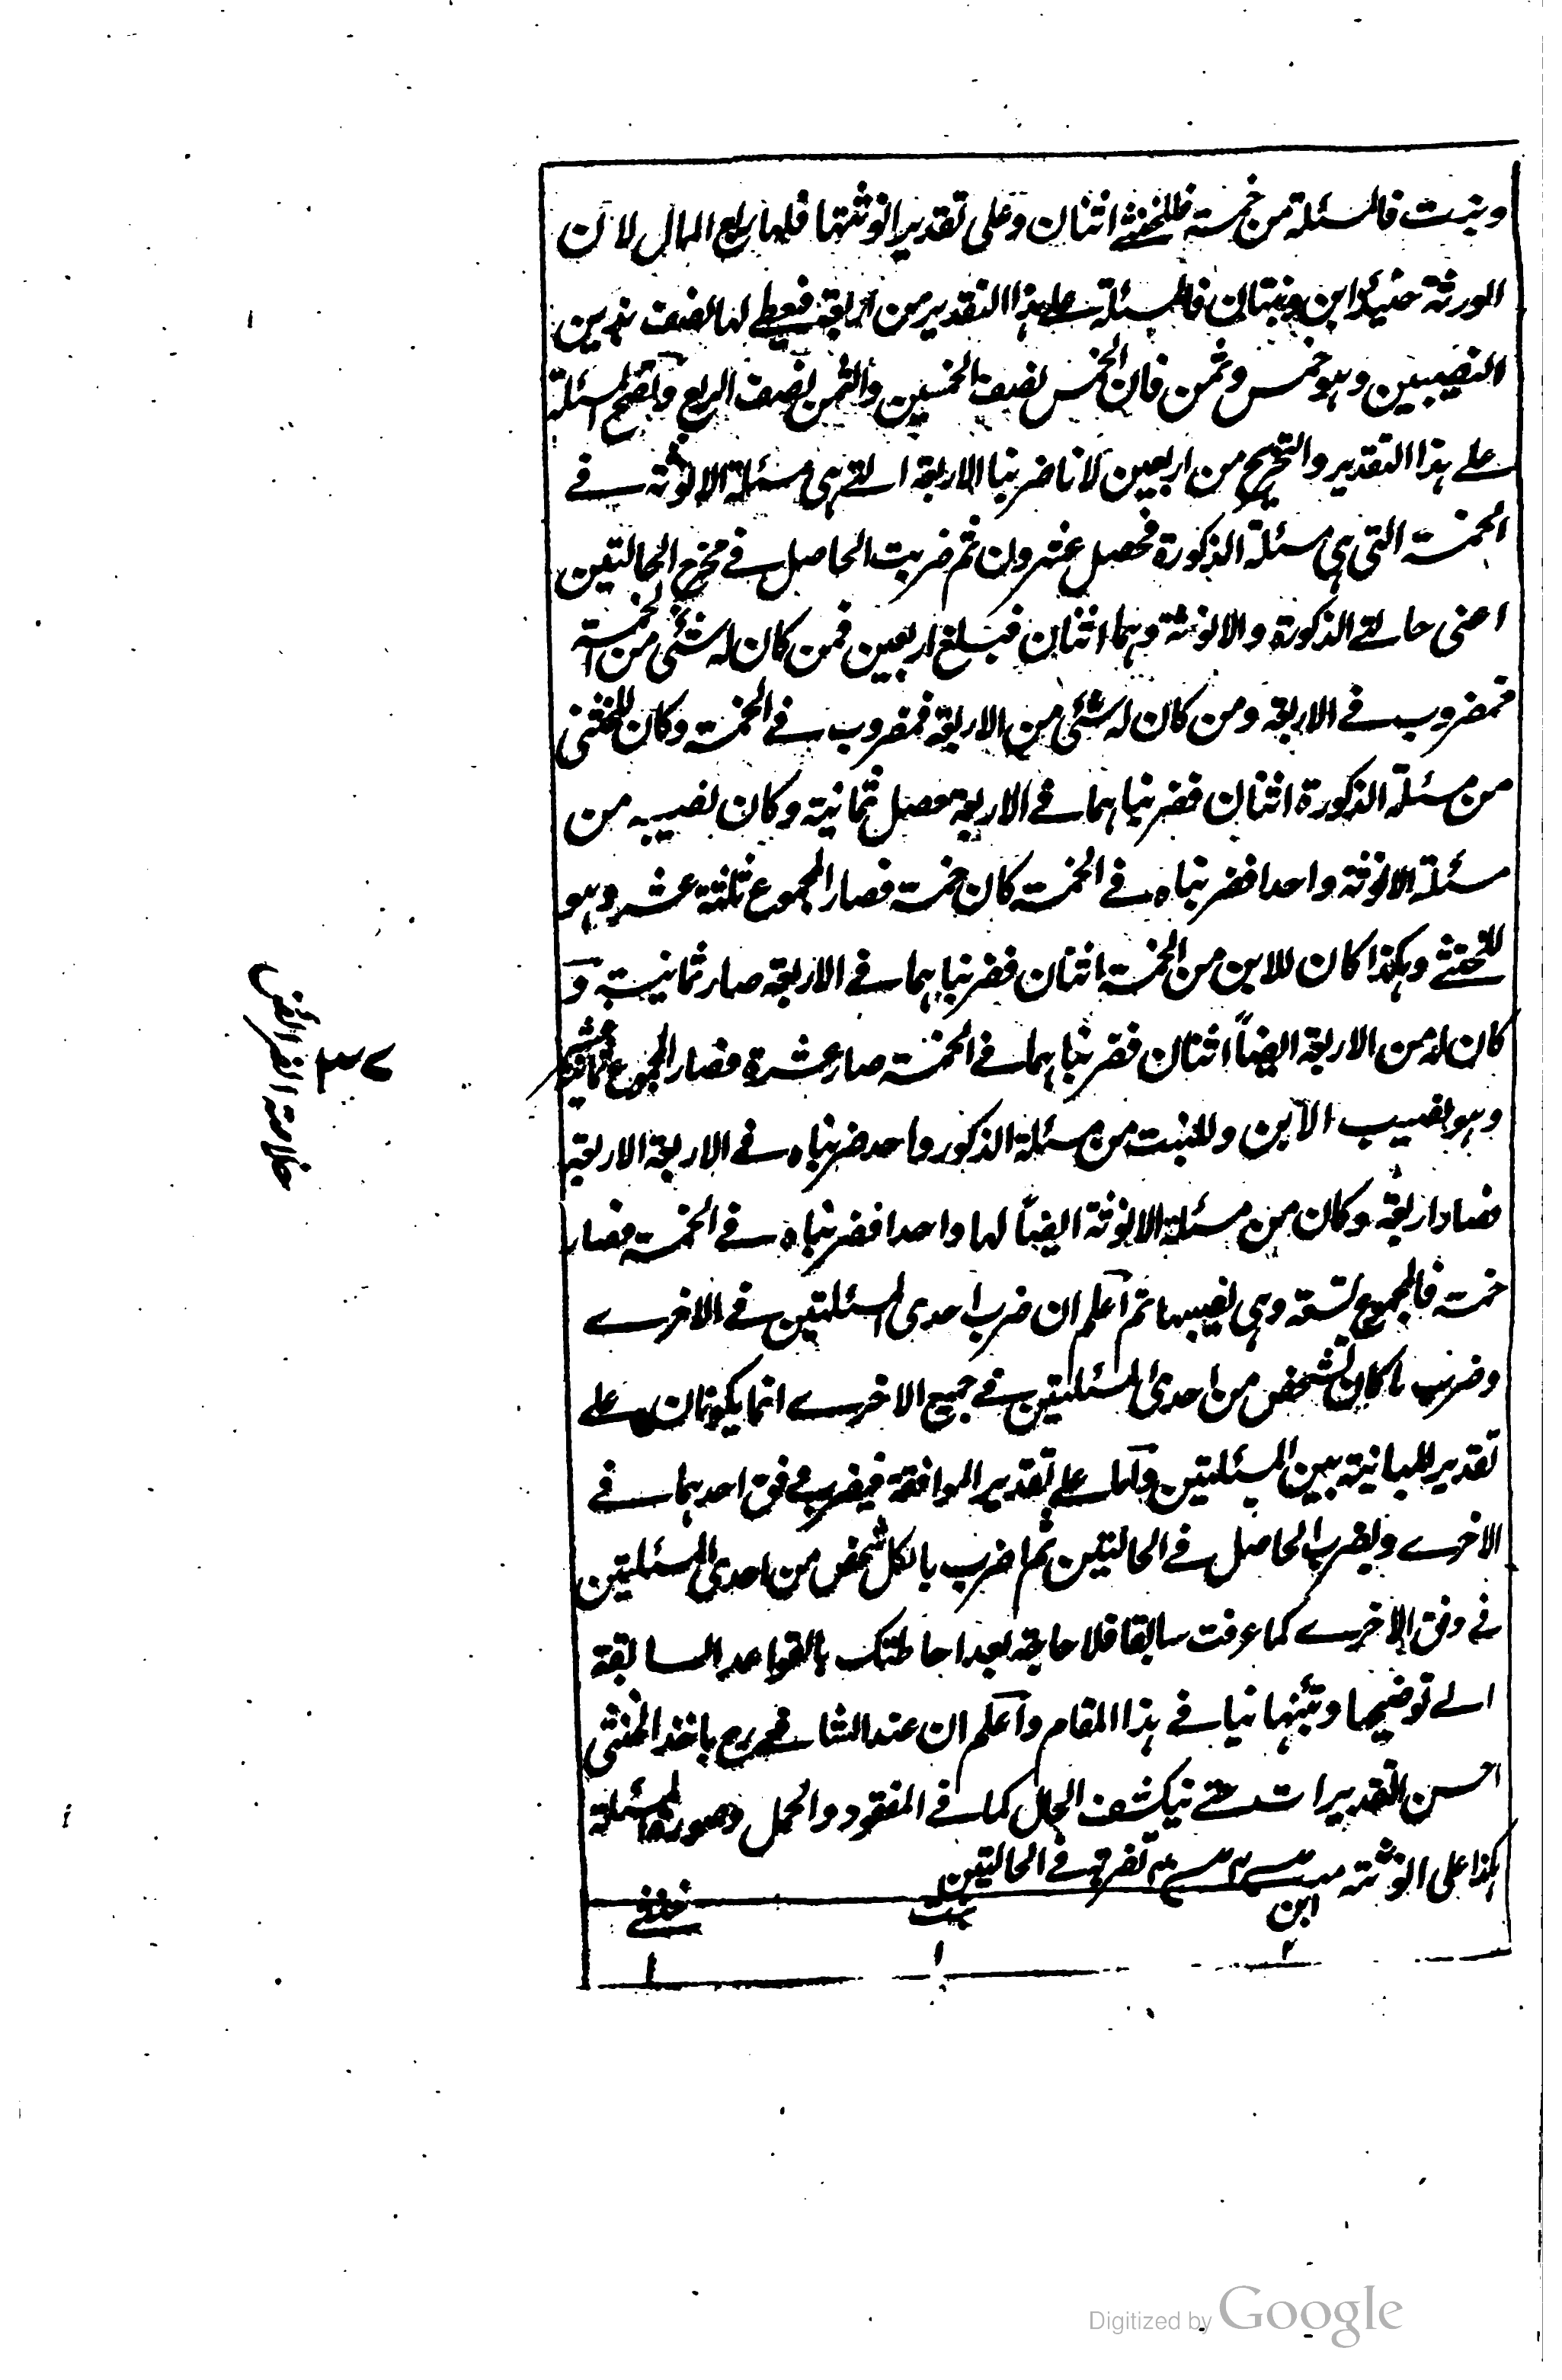 وبنت فالمسئلة من خمسة فللخنثے اثنان وعلى تقدير انوثتها فلها ربع المال لان
الورثة حينئذ ابن وبنتان فالمسئلة علے هذا التقدير من اربعة فيعطے لها نصف هذين
النصيبين وهو خمس وثمن فان الخمس نصف الخمسين والثمن نصف الربع وتصح المسئلة
علے هذا التقدير والتصحيح من اربعين لانا ضربنا الاربعة التے هى مسئلة الانوثة فے
الخمسة التى هى مسئلة الذكورة فحصل عشرون ثم ضربت الحاصل فے مخرج الحالتين
اعنى حالتے الذكورة والانوثة وهما اثنان فبلغ اربعين فمن كان له شئى من الخمسة
فمضروب فے الاربعة ومن كان له شئى من الاربعة فمضروب فے الخمسة وكان للخنثى
من مسئلة الذكورة اثنان فضربناهما فے الاربعة حصل ثمانية وكان نصيبه من
مسئلة الانوثة واحدا فضربناه فے الخمسة كان خمسة فصار المجموع ثلثة عشر وهو
للخنثے وهكذا كان للابن من الخمسة اثنان فضربناهما فے الاربعة صار ثمانية و
كان له من الاربعة ايضاً اثنان فضربناهما فے الخمسة صار عشرة فصار المجموع ثمانية عشر
وهو نصيب الابن وللبنت من مسئلة الذكور واحد ضربناه فے الاربعة الاربعة
فصار اربعة وكان من مسئلة الانوثة ايضاً لها واحدا فضربناه فے الخمسة فصار
خمسة فالمجموع تسعة وهى نصيبها ثم اعلم ان ضرب احدى المسئلتين فے الاخرے
وضرب ما كان لشخص من احدى المسئلتين فے جميع الاخرے انما يكونان علے
تقدير المباينة بين المسئلتين واما علے تقدير الموافقة فيضرب وفق احدهما فے
الاخرے ويضرب الحاصل فے الحالتين ثم اضرب بالكل شخص من احدى المسئلتين
فے وفق الاخرے كما عرفت سابقا فلا حاجة بعد احاطتك بالقواعد السابقة
الے توضيحها وتبئنها نيا فے هذا المقام واعلم ان عند الشافعے رح ياخذ الخنثى
احسن التقديرات حتے ينكشف الحال كما فے المفقود والحمل وصورة المسئلة
هكذا على انوثة تفرقه فے الحالتين
ابن بنت خنثے
۲ ۱ ۱
خلاصة الفرائض